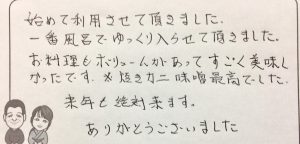 始めて利用させて頂きました.
一番風呂でゆっくり入らせて頂きました。
お料理もボリュームがあってすごく美味し
かったです. 焼きカニ味噌最高でした.
来年も絶対来ます。
ありがとうございました